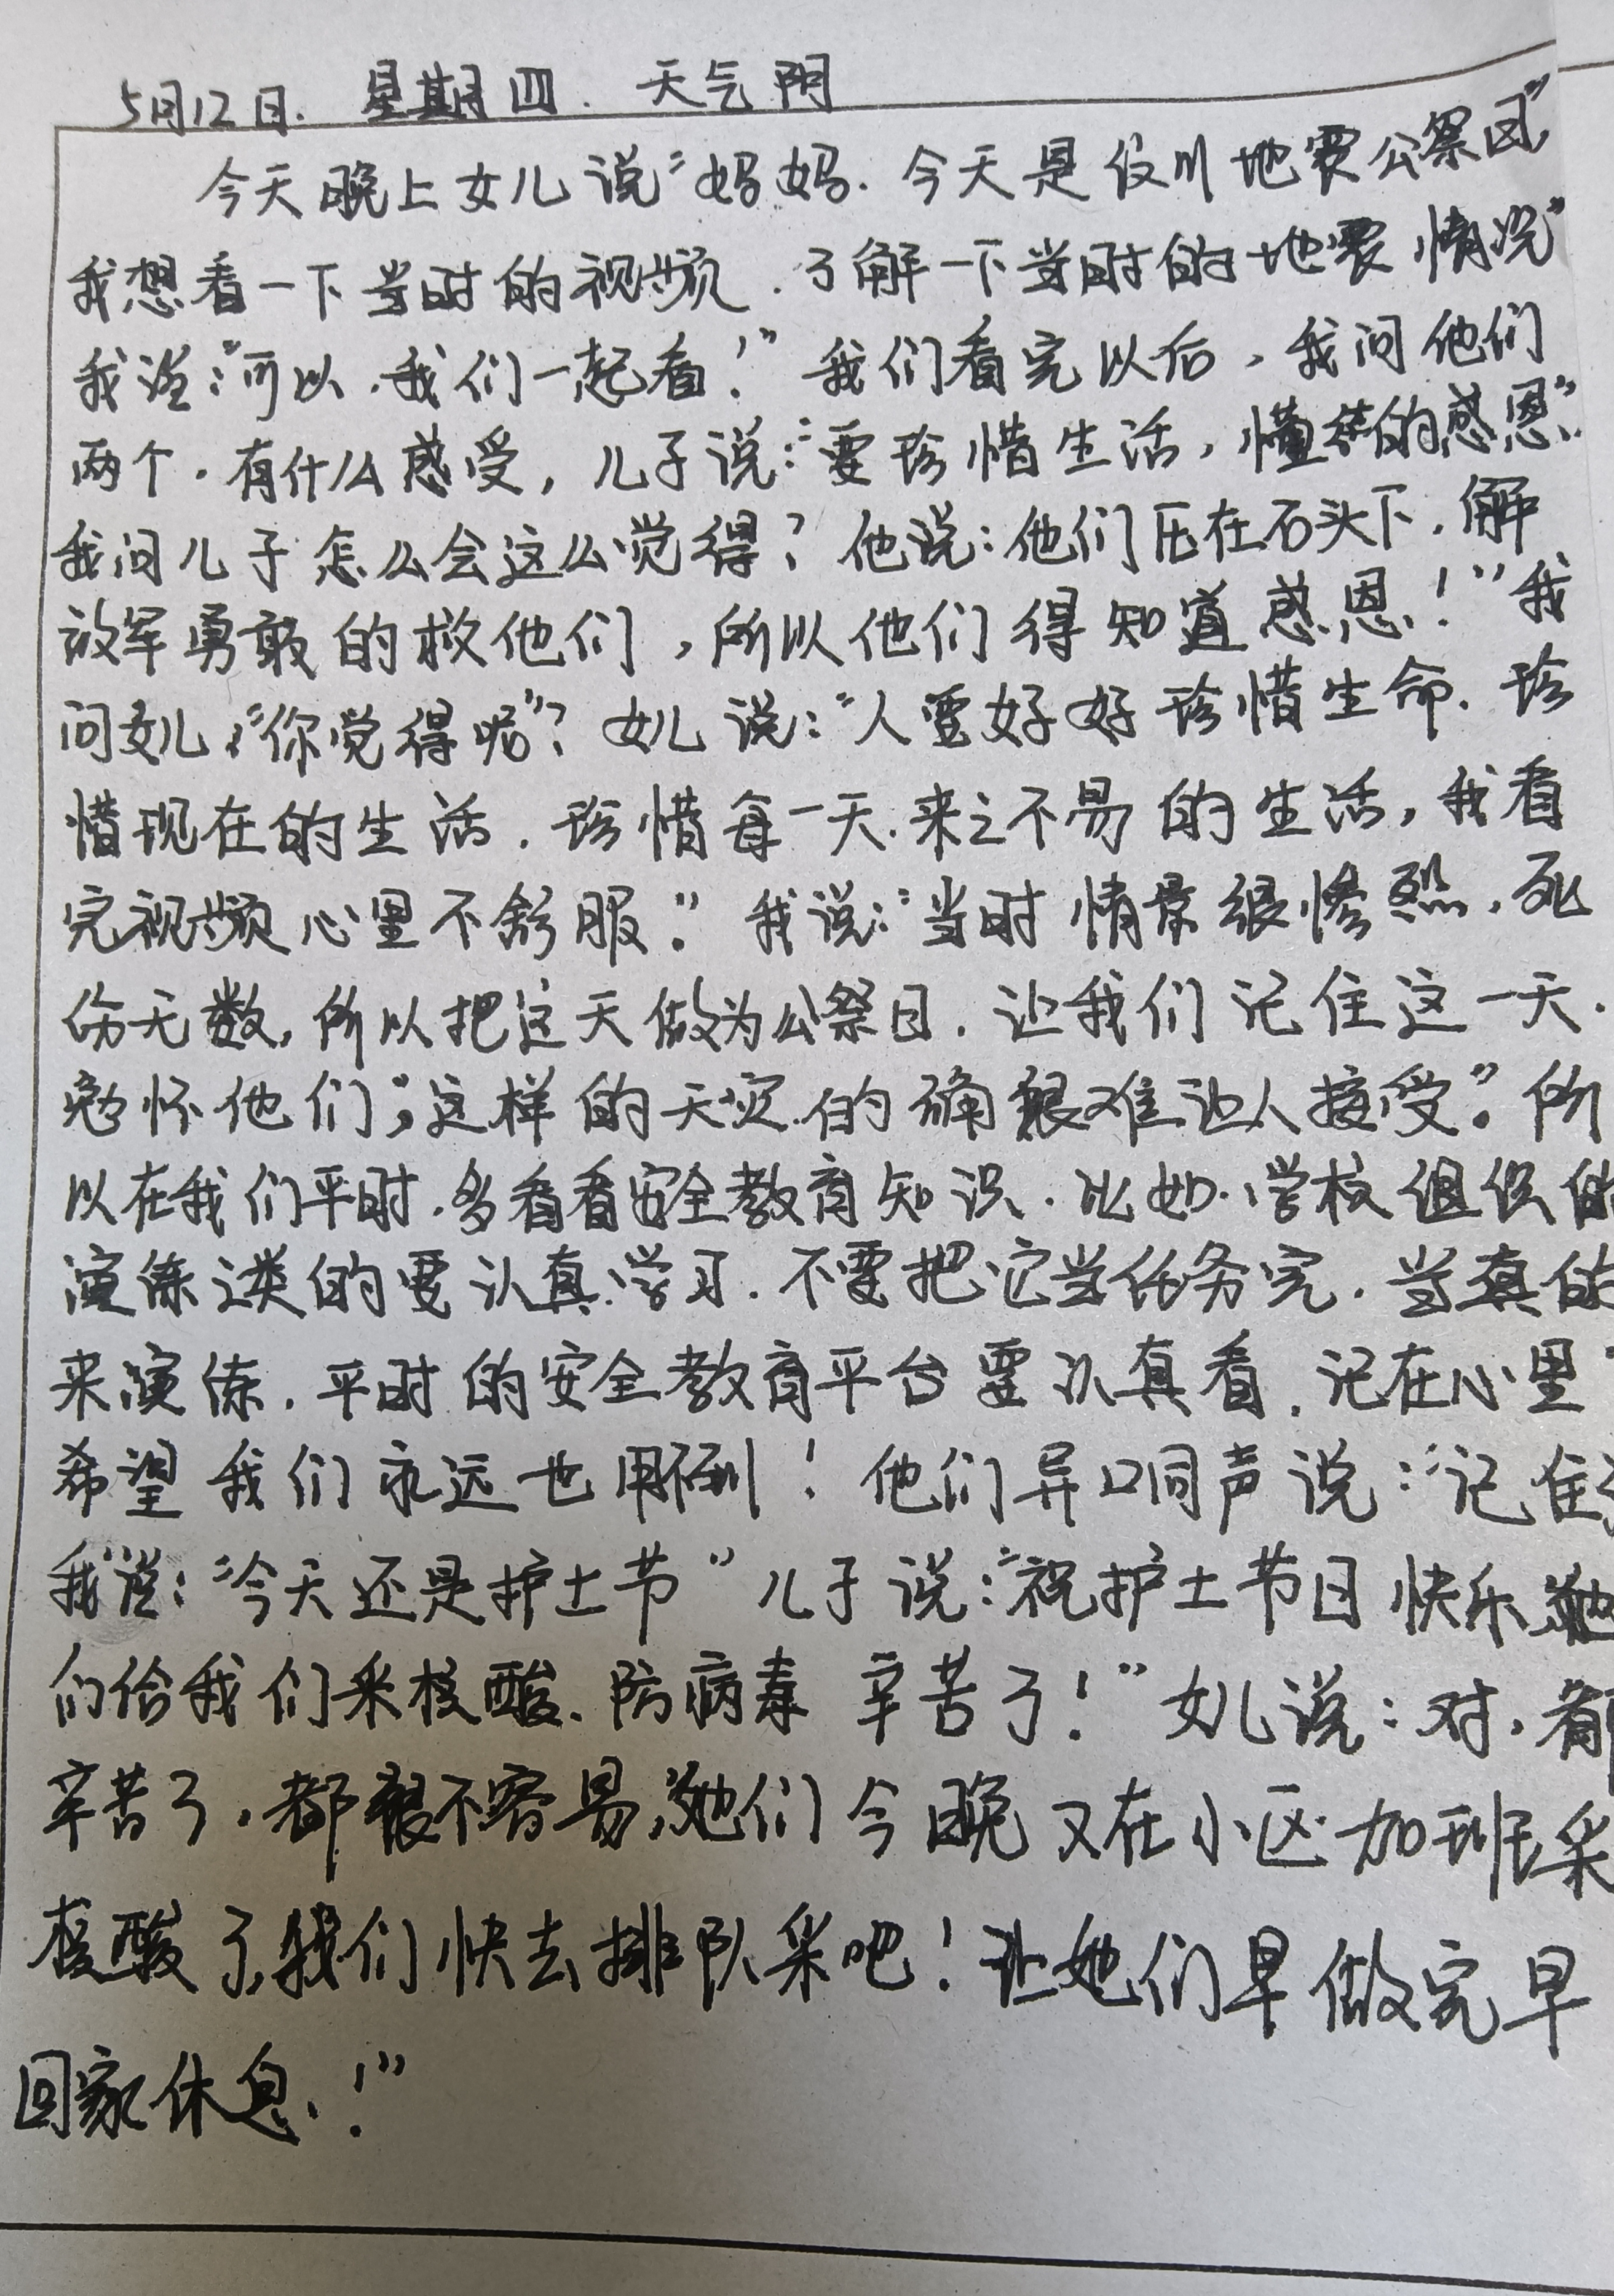 5月12日. 星期四. 天气阴
今天晚上女儿说"妈妈.今天是汶川地震公祭日"
我想看一下当时的视频.了解一下当时的地震情况"
我说:"可以.我们一起看!"我们看完以后,我问他们
两个.有什么感受,儿子说:"要珍惜生活,懂得感恩".
我问儿子怎么会这么觉得?他说:他们压在石头下.解
放军勇敢的救他们,所以他们得知道感恩!"我
问女儿,"你觉得呢"?女儿说:"人要好好珍惜生命.珍
惜现在的生活.珍惜每一天.来之不易的生活,我看
完视频心里不舒服."我说:"当时情景很惨烈.死
伤无数,所以把这天做为公祭日.让我们记住这一天.
怀他们","这样的天灾.的确很难让人接受".所
以在我们平时.多看看安全教育知识.比如.学校组织的
演练之类的要认真学习.不要把它当任务完.当真的
来演练.平时的安全教育平台要认真看.记在心里
希望我们永远也用不到!他们异口同声说:"记住
我说:"今天还是护士节"儿子说:"祝护士节日快乐她
们给我们采核酸.防病毒 辛苦了!"女儿说:对.都
辛苦了.都很不容易,她们今晚又在小区加班采
核酸了,我们快去排队采吧!让她们早做完早
回家休息.!"